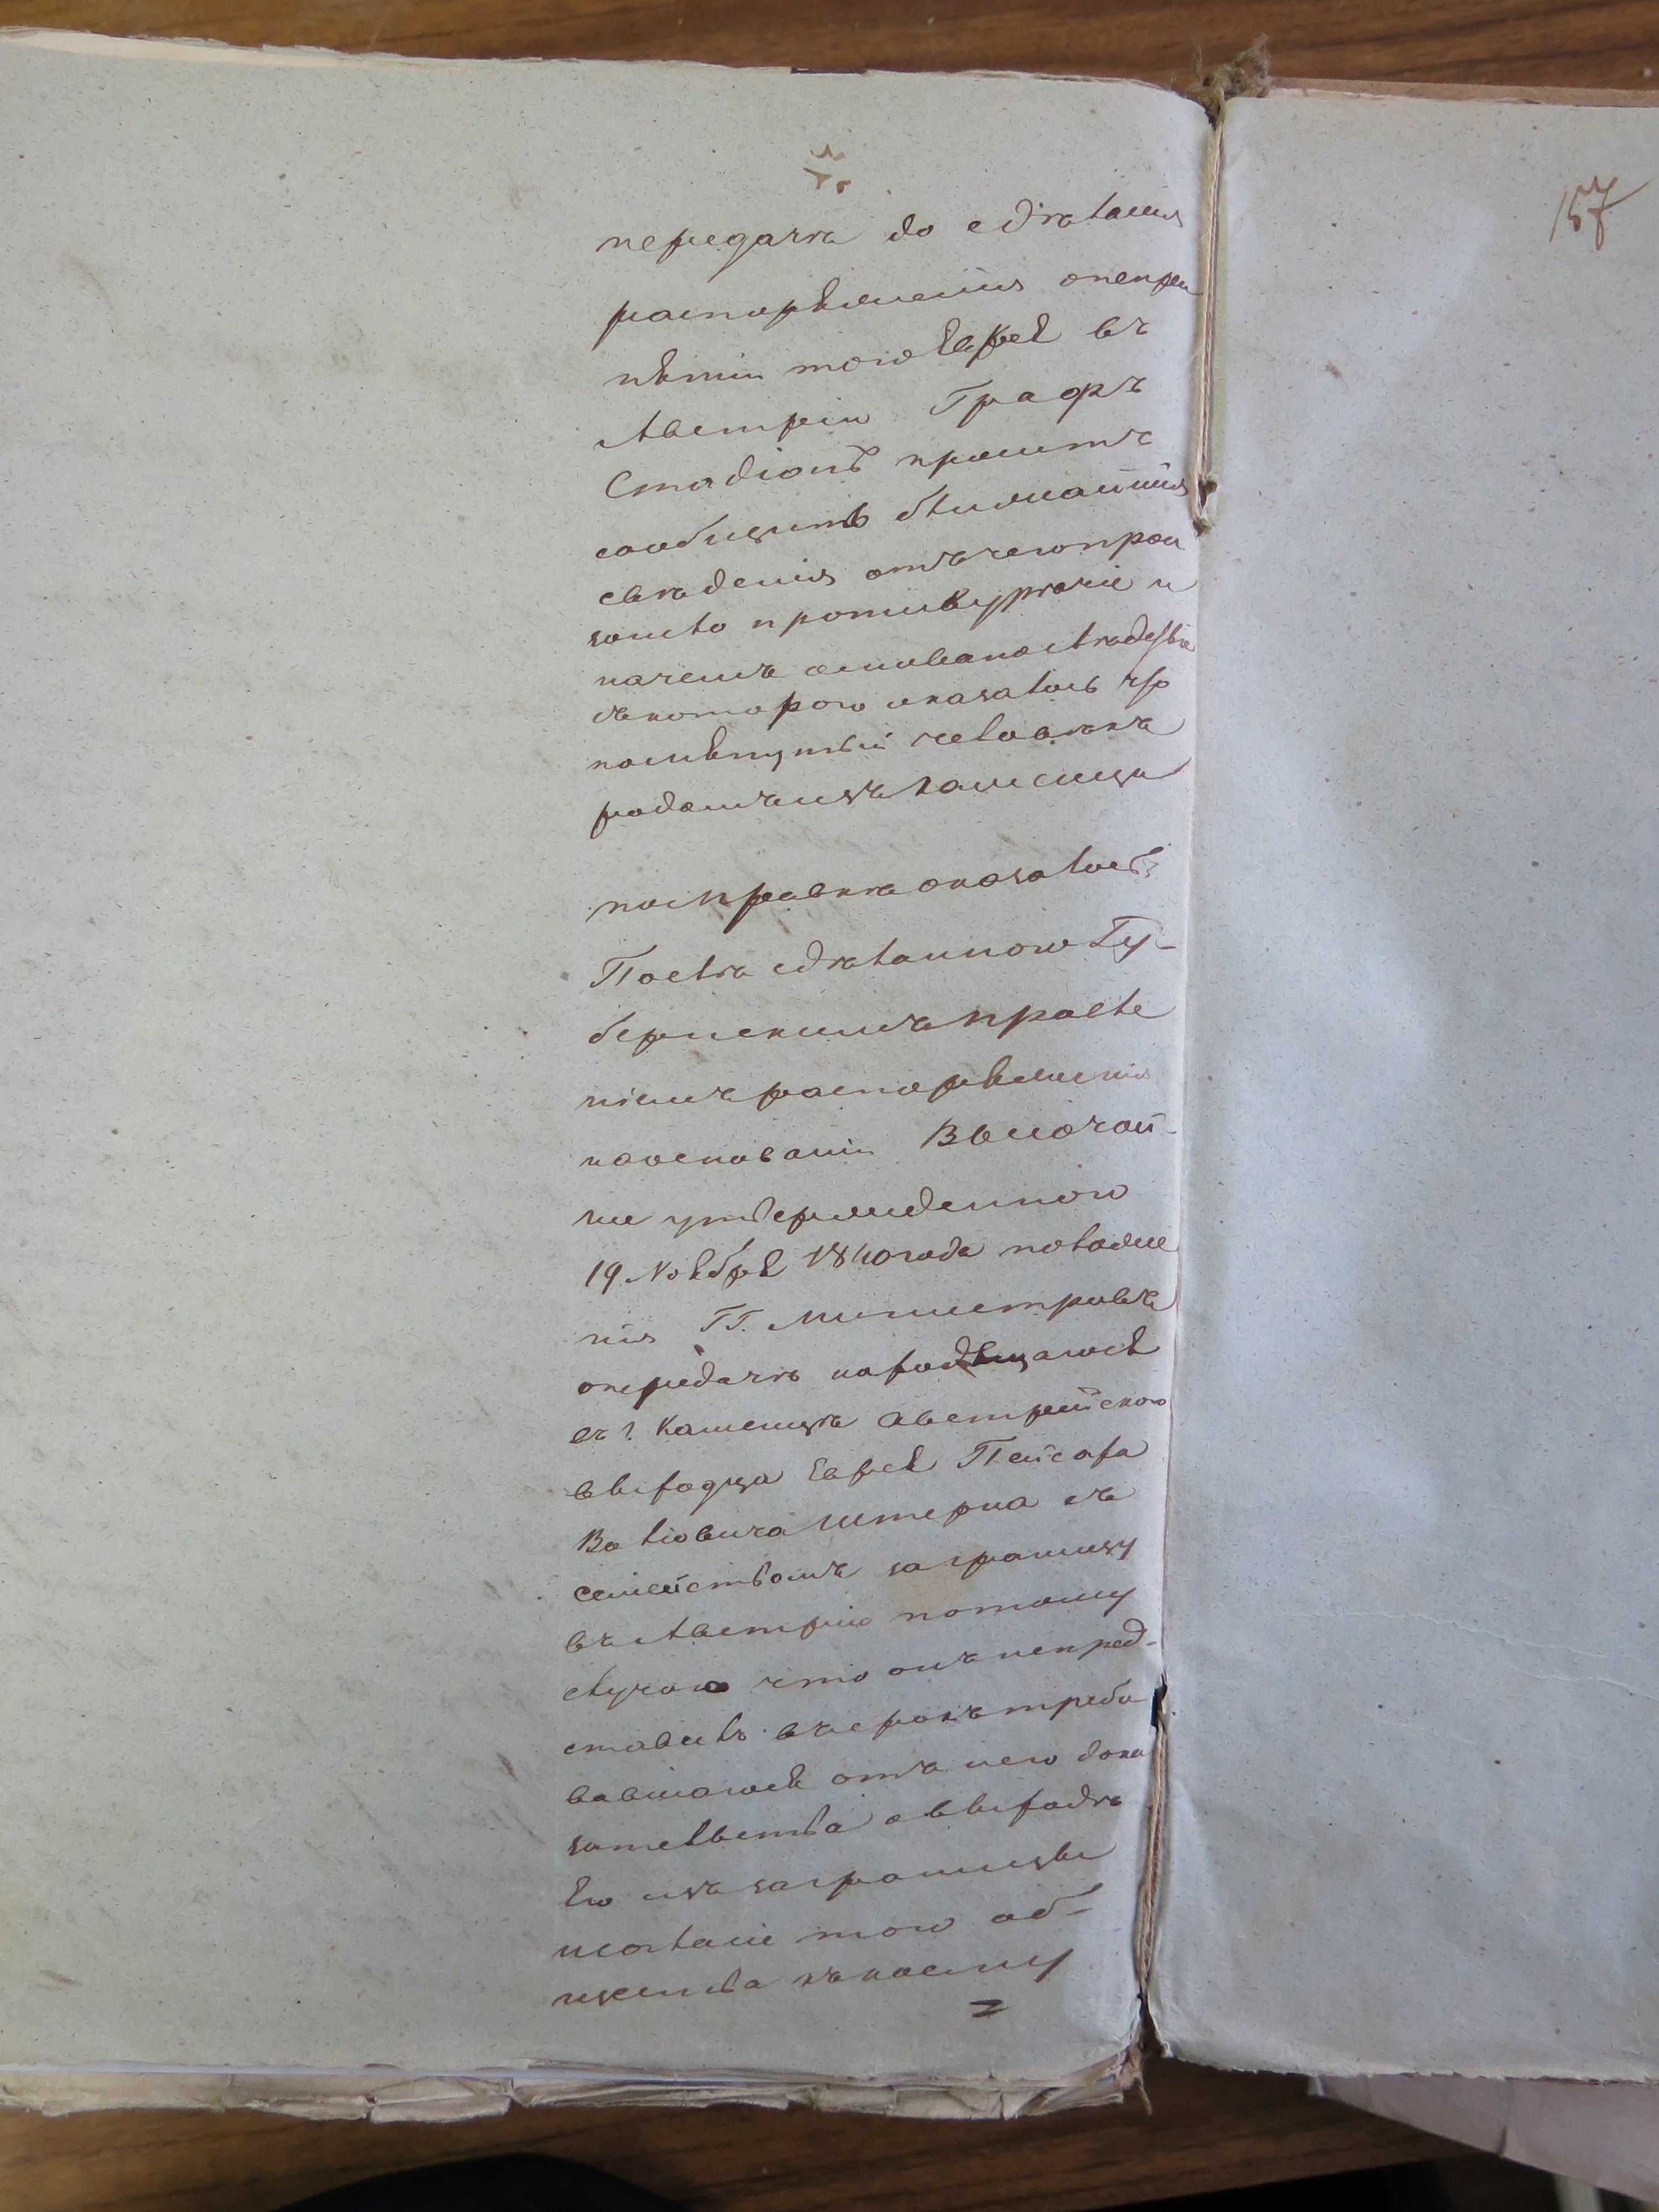 157
передачѣ до сдѣланія
распоряженія онепри
нятіи того Еврея въ
Австріи Графъ
Стадіонъ проситъ
сообщить ближайшія
свѣденія отъ чего прои
зошло противурѣчіе и
на чемъ основано слѣдствіе
съ котораго оказалось что
помянутый человѣкъ
родомъ изъ Каменца
По справкѣ оказалось:
Послѣ сдѣланного Гу-
бернскимъ правле
ніемъ распоряженія
на основаніи Высочай-
ше утвержденного
19 Ноября 1840 года положе
нія ГГ. Министровъ
о передачѣ находящагося
въ г. Каменцѣ Австрійского
выходца Еврея Пейсаха
Воліовича Штерна съ
семействомъ за границу
въ Австрію потому
случаю что онъ непред-
ставилъ въ срокъ требо
вавшагося отъ него дока
зательства о выходѣ
Его изъ заграницы
и согласіе того об-
щества къ коему